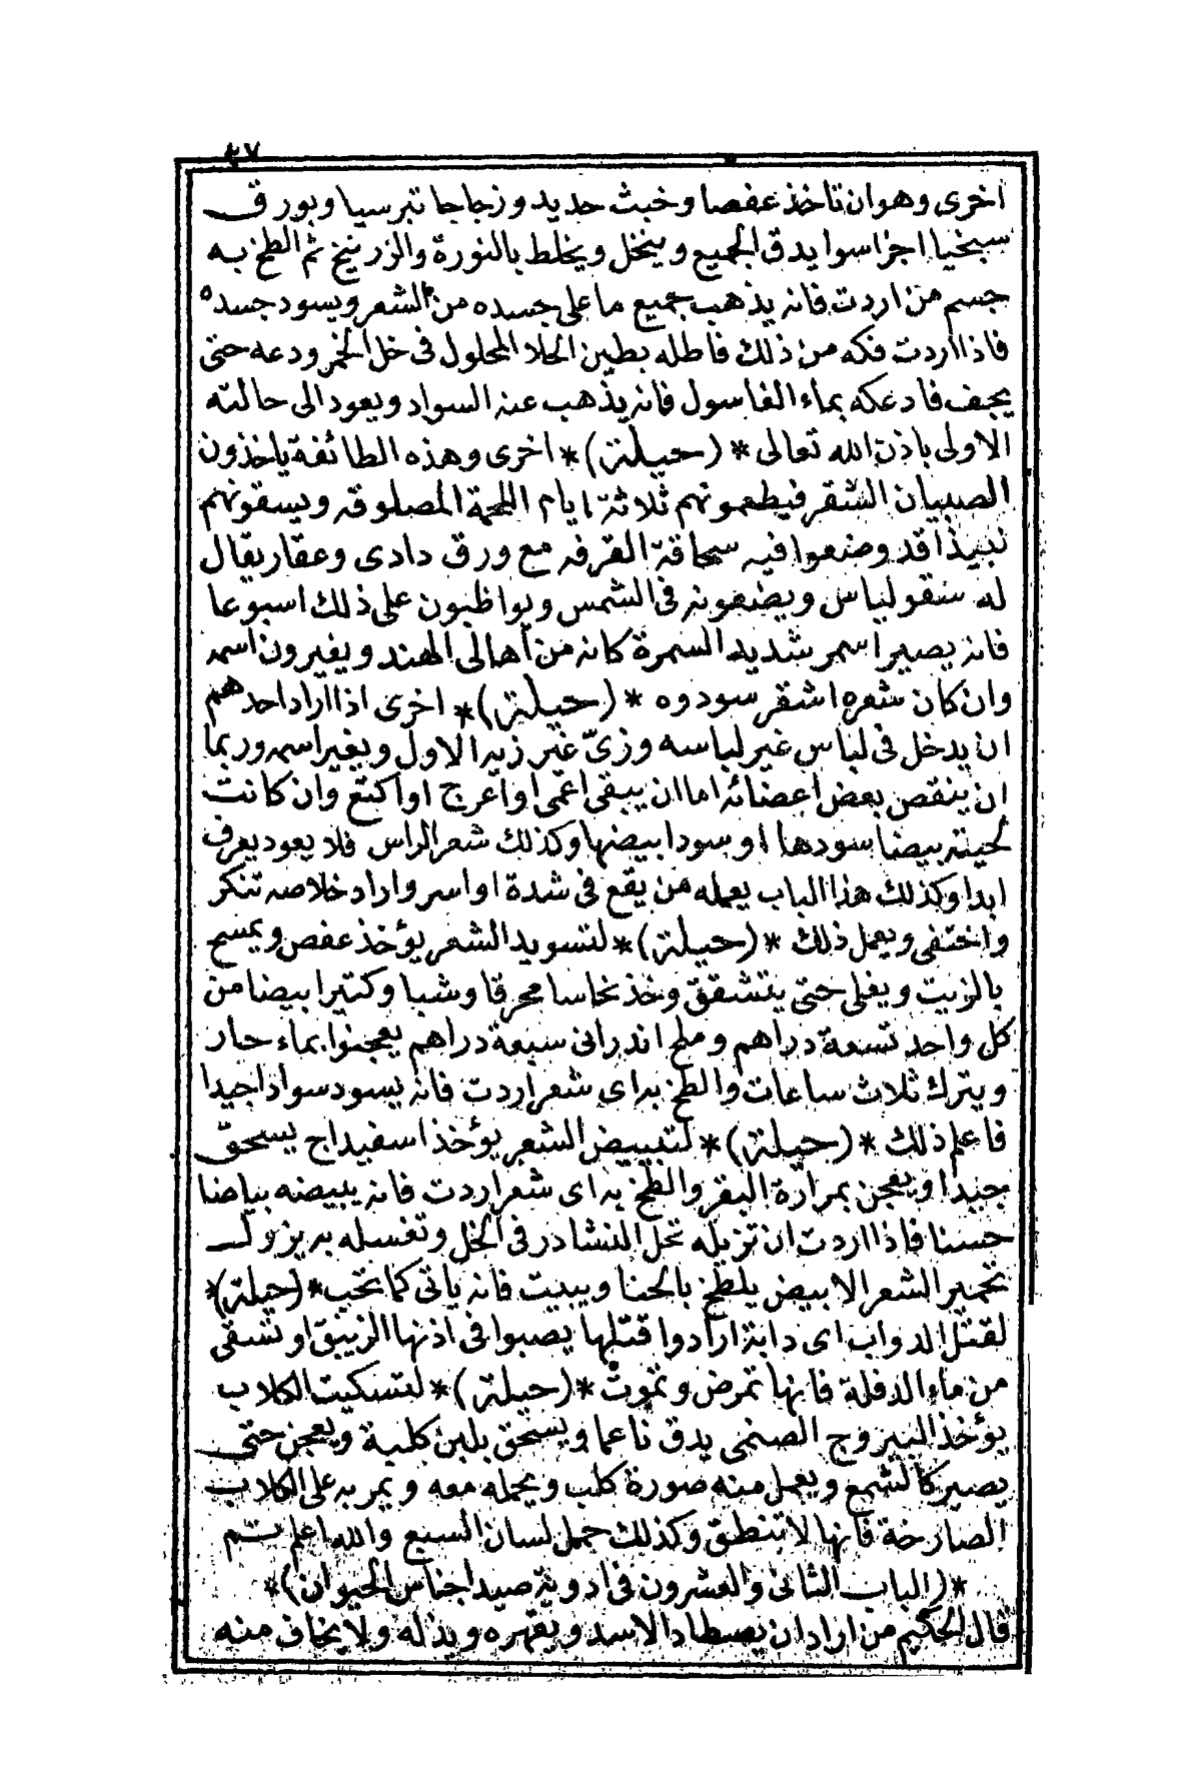 ٤٧
اخرى وهو ان تاخذ عفصا وخبث حديد وزجاجا تبرسيا وبورق
سبخيا اجزا سوا يدق الجميع وينخل ويخلط بالنورة والزرنيخ ثم الطخ به
جسم من اردت فانه يذهب جميع ما على جسده من الشعر ويسود جسده
فاذا اردت فكه من ذلك فاطله بطين الحلا المحلول فى خل الخمر ودعه حتى
يجف فادعكه بماء الغاسول فانه يذهب عنه السواد ويعود الى حالته
الاولى باذن الله تعالى * (حيلة) * اخرى وهذه الطائفة ياخذون
الصبيان الشقر فيطعمونهم ثلاثة ايام اللحمة المصلوقه ويسقونهم
نبيذا قد وضعوا فيه سحاقة القرفه مع ورق دادى وعقار يقال
له سنقولياس ويضعونه فى الشمس ويواظبون على ذلك اسبوعا
فانه يصير اسمر شديد السمرة كانه من أهالى الهند ويغيرون اسمه
وان كان شعره اشقر سودوه * (حيلة) * اخرى اذا اراد احدهم
ان يدخل فى لباس غير لباسه وزىّ غير زيه الاول ويغير اسمه وربما
ان ينقص بعض اعضائه اما ان يبقى اعمى او اعرج او اكتع وان كانت
لحيته بيضا سودها او سودا بيضها وكذلك شعر الراس فلا يعود يعرف
ابدا وكذلك هذا الباب يعمله من يقع فى شدة او اسر واراد خلاصه تنكر
واختفى ويعمل ذلك * (حيلة) * لتسويد الشعر يؤخذ عفص ويمسح
بالزيت ويغلى حتى يتشقق وخذ نحاسا محرقا وشبا وكتيرا بيضا من
كل واحد تسعة دراهم وملح اندرانى سبعة دراهم يعجنوا بماء حار
ويترك ثلاث ساعات والطخ به اى شعر اردت فانه يسود سوادا جيدا
فاعلم ذلك * (حيلة) * لتبييض الشعر يؤخذ اسفيداج يسحق
جيدا ويعجن بمرارة البقر والطخ به اى شعر اردت فانه يبيضه بياضا
حسنا فاذا اردت ان تزيله تحل النشادر فى الخل وتغسله به يزول
تحمير الشعر الابيض يلطخ بالحنا ويبيت فانه ياتى كما تحب * (حيلة) *
لقتل الدواب اى دابة ارادوا قتلها يصبوا فى اذنها الزيبق او تسقى
من ماء الدفلة فانها تمرض وتموت * (حيلة) * لتسكيت الكلاب
يؤخذ اليبروج الصنمى يدق ناعما ويسحق بلبن كلبة ويعجن حتى
يصير كالشمع ويعمل منه صورة كلب ويحمله معه ويمر به على الكلاب
الصارخة فانها لا تنطق وكذلك حمل لسان السبع والله اعلم تم
* (الباب الثانى والعشرون فى ادوية صيد اجناس الحيوان) *
قال الحكيم من اراد ان يصطاد الاسد ويقهره ويذله ولا يخاف منه